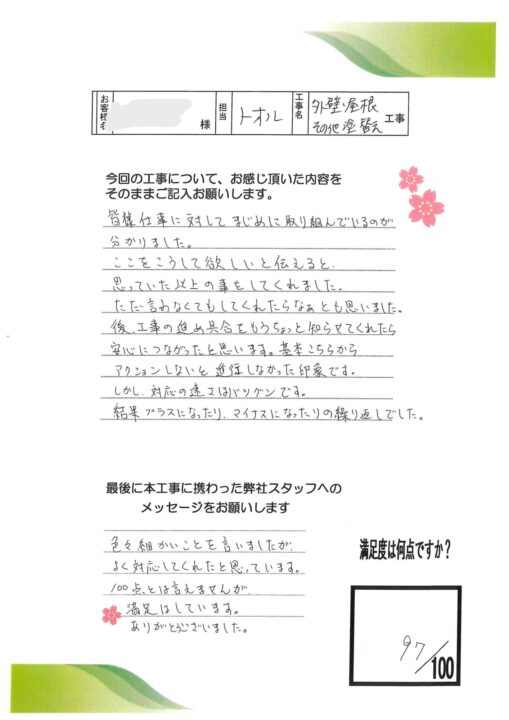 お客様名 様 担当 トオル 工事名 外壁・屋根 その他塗替え 工事
今回の工事について、お感じ頂いた内容を
そのままご記入お願いします。
皆様仕事に対してまじめに取り組んでいるのが
分かりました。
ここをこうして欲しいと伝えると、
思っていた以上の事をしてくれました。
ただ言わなくてもしてくれたらなぁとも思いました。
後、工事の進め具合をもうちょっと知らせてくれたら
安心につながったと思います。基本こちらから
アクションしないと進展しなかった印象です。
しかし、対応の速さはバツグンです。
結果プラスになったり、マイナスになったりの繰り返しでした。
最後に本工事に携わった弊社スタッフへの
メッセージをお願いします
色々細かいことを言いましたが、
よく対応してくれたと思っています。
100点とは言えませんが、
満足はしています。
ありがとうございました。
満足度は何点ですか?
97/100